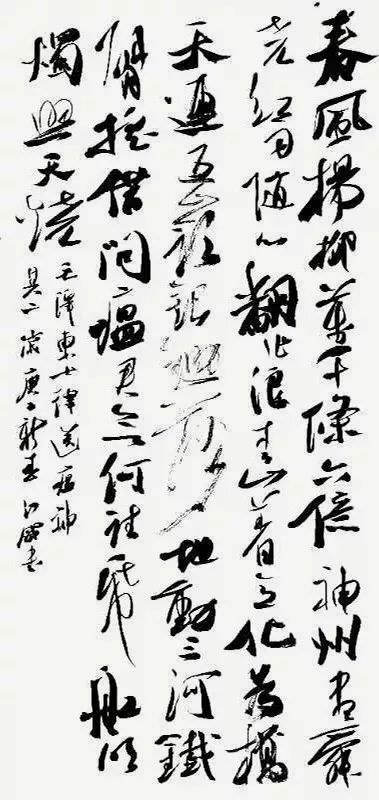 春風楊柳萬千條六億神州盡舜
尧红雨随心翻作浪青山着意化为橋
天連五嶺銀鋤落地動三河鐵
臂搖借问瘟君欲何往紙船明
燭照天燒
毛澤東七律送瘟神
其二歲庚新春书